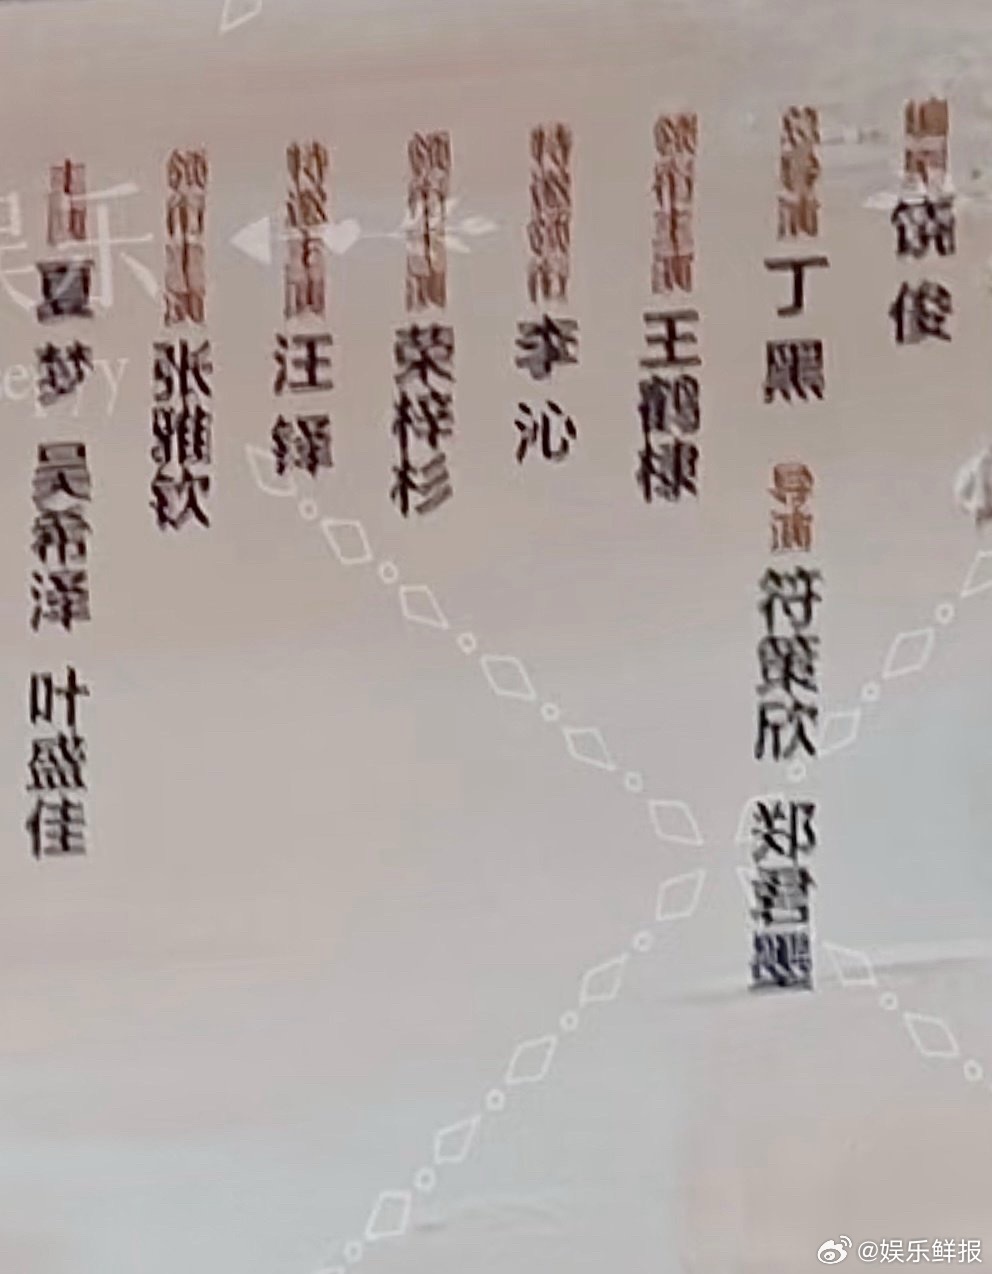 编剧 饶俊
总导演 丁黑 导演 符策欣 郑君墨
领衔主演 王鹤棣
特邀领衔 李沁
领衔主演 荣梓杉
特邀主演 汪铎
领衔主演 张雅钦
主演 夏梦 吴希泽 叶盛佳
娱乐
@娱乐鲜报